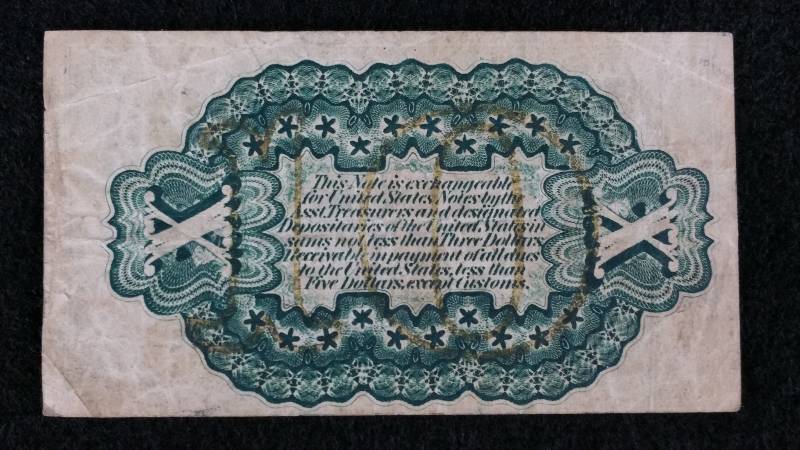 This Note is exchangeable
for United States Notes by the
Asst. Treasurers and designated
Depositaries of the United States in
sums not less than Three Dollars
Received in payment of all dues
to the United States, less than
Five Dollars, except Customs.
X X
10